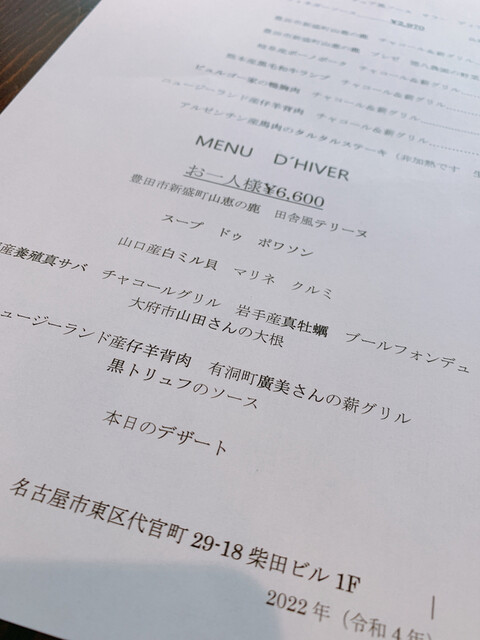 ¥2,970
豊田市新盛町山恵の鹿 チャコール&薪グリル
チャコール&薪グリル
熊本産黒毛和牛ランプ チャコール&薪グリル
ビュルゴー家の鴨胸肉 チャコール&薪グリル
ニュージーランド産仔羊背肉 チャコール&薪グリル
アルゼンチン産馬肉のタルタルステーキ（非加熱です
MENU D'HIVER
お一人様¥6,600
豊田市新盛町山恵の鹿 田舎風テリーヌ
スープ ドゥ ポワソン
山口産白ミル貝 マリネ クルミ
産養殖真サバ チャコールグリル 岩手産真牡蠣 ブールフォンデュ
大府市山田さんの大根
ュージーランド産仔羊背肉 有洞町廣美さんの薪グリル
黒トリュフのソース
本日のデザート
名古屋市東区代官町 29-18 柴田ビル 1F
2022 年（令和 4 年